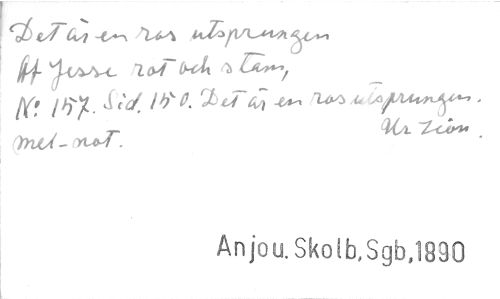 Det är en ros utsprungen
Af Jesse rot och stam,
No: 157. Sid. 150. Det är en ros utsprungen.
Ur Zion.
mel-not.
Anjou. Skolb, Sgb, 1890